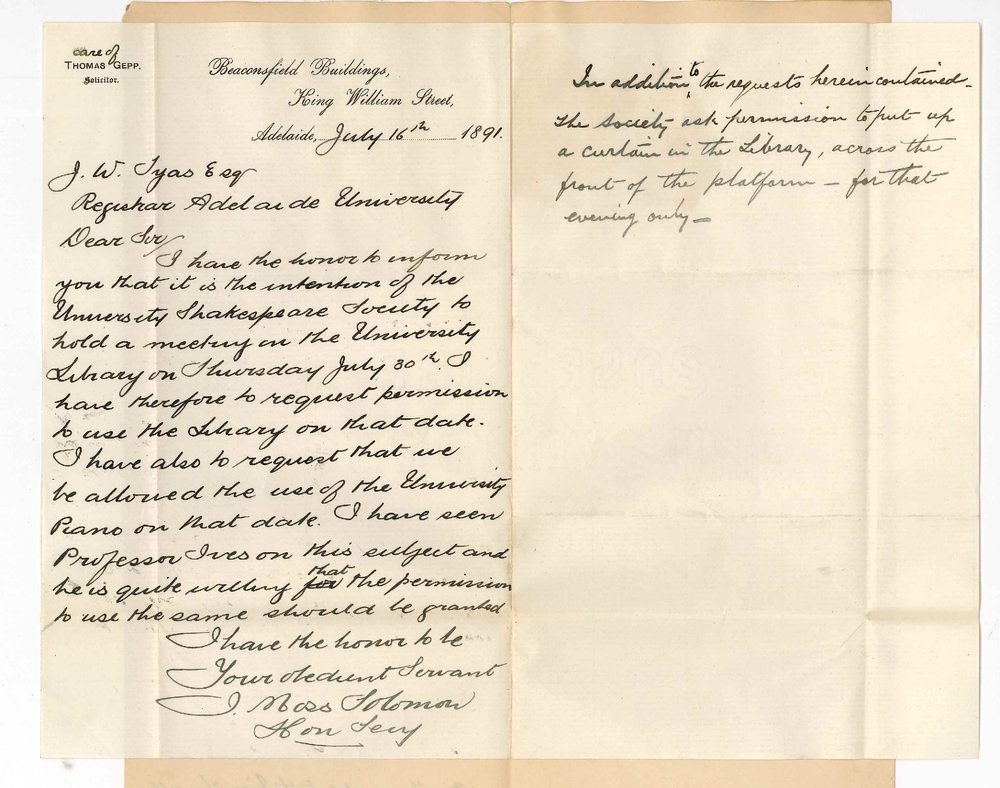 care of
THOMAS GEPP.
Solicitor.
Beaconsfield Buildings,
King William Street,
Adelaide, July 16th 1891.
J. W. Tyas Esq
Registrar Adelaide University
Dear Sir/
I have the honor to inform
you that it is the intention of the
University Shakespeare Society to
hold a meeting in the University
Library on Thursday July 30th. I
have therefore to request permission
to use the Library on that date.
I have also to request that we
be allowed the use of the University
Piano on that date. I have seen
Professor Ives on this subject and
he is quite willing for that the permission
to use the same should be granted
I have the honor to be
Your obedient Servant
J. Moss Solomon
Hon Secy
In addition to the requests herein contained -
the Society ask permission to put up
a curtain in the Library, across the
front of the platform - for that
evening only -